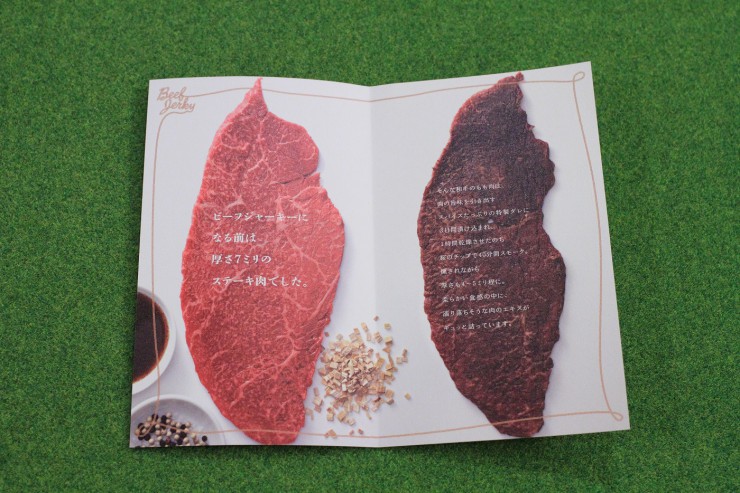 Beef
Jerky
ビーフジャーキーに
なる前は、
厚さ7ミリの
ステーキ肉でした。
そんな和牛のもも肉は、
肉の旨味を引き出す
スパイスたっぷりの特製ダレに
3日間漬け込まれ、
1時間乾燥させたのち
桜のチップで45分間スモーク。
燻されながら
厚さも4〜5ミリ程に。
柔らかい食感の中に、
滴り落ちそうな肉のエキスが
ギュッと詰っています。